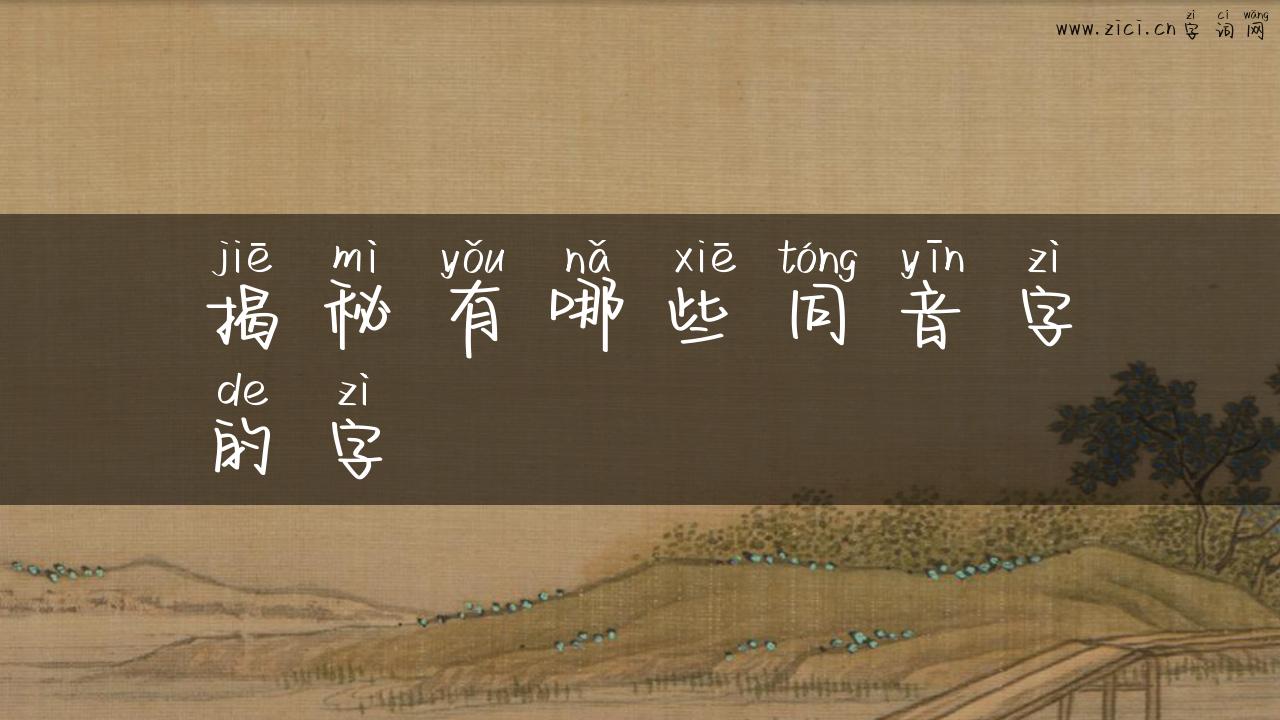 zì cí wǎng
www.zici.cn字词网
jiē mì yǒu nǎ xiē tóng yīn zì
揭秘有哪些同音字
de zì
的字